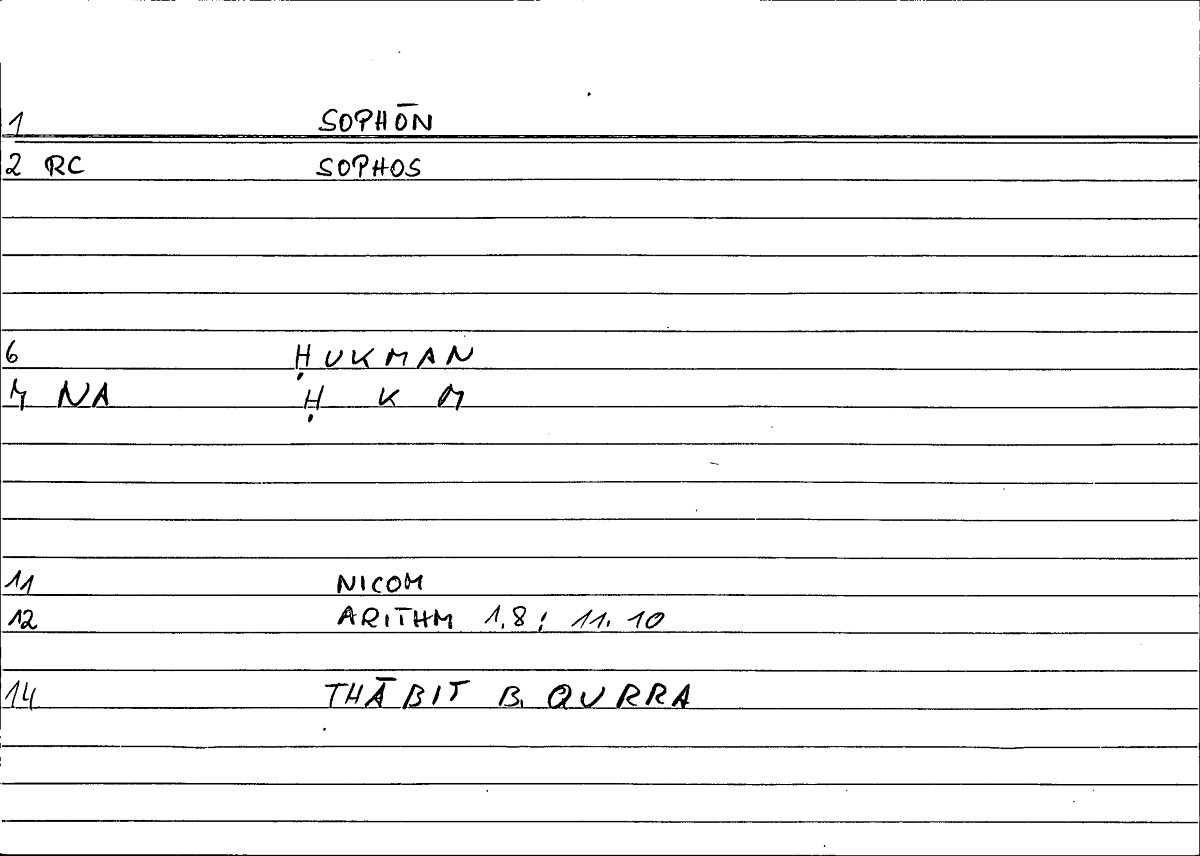 1 SOPHŌN
2 RC SOPHOS
6 ḤUKMAN
7 NA Ḥ K M
11 NICOM
12 ARITHM 1,8; 11.10
14 THĀBIT B. QURRA